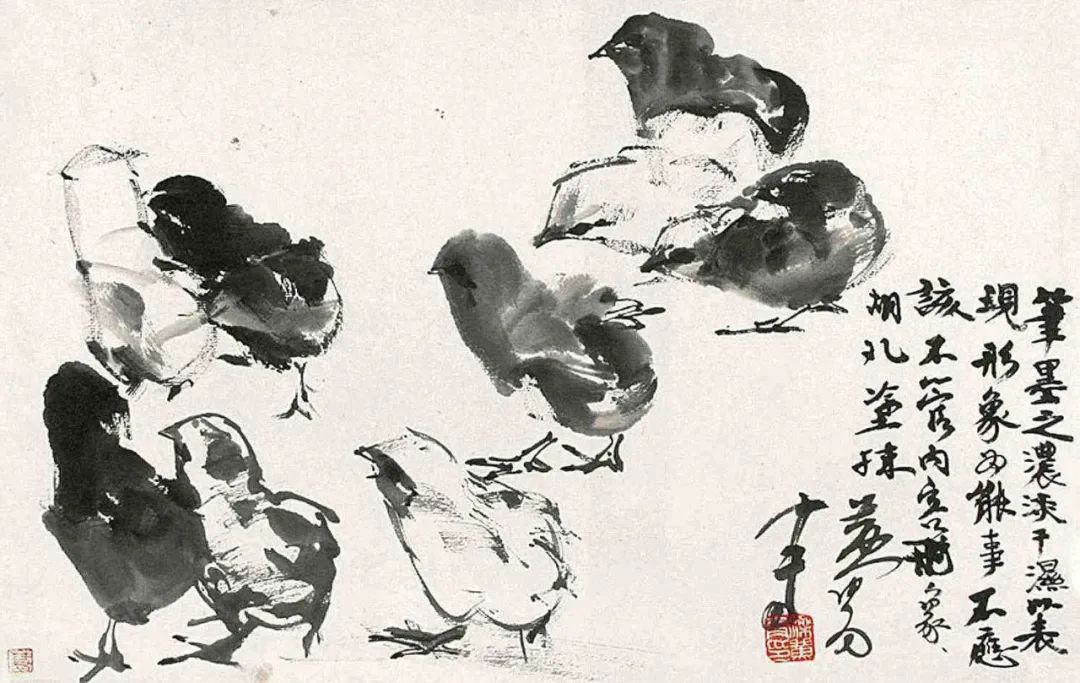 筆墨之濃淡干濕以表
現形象為能事不應
該不管内容形象、
胡乱塗抹
黄胄